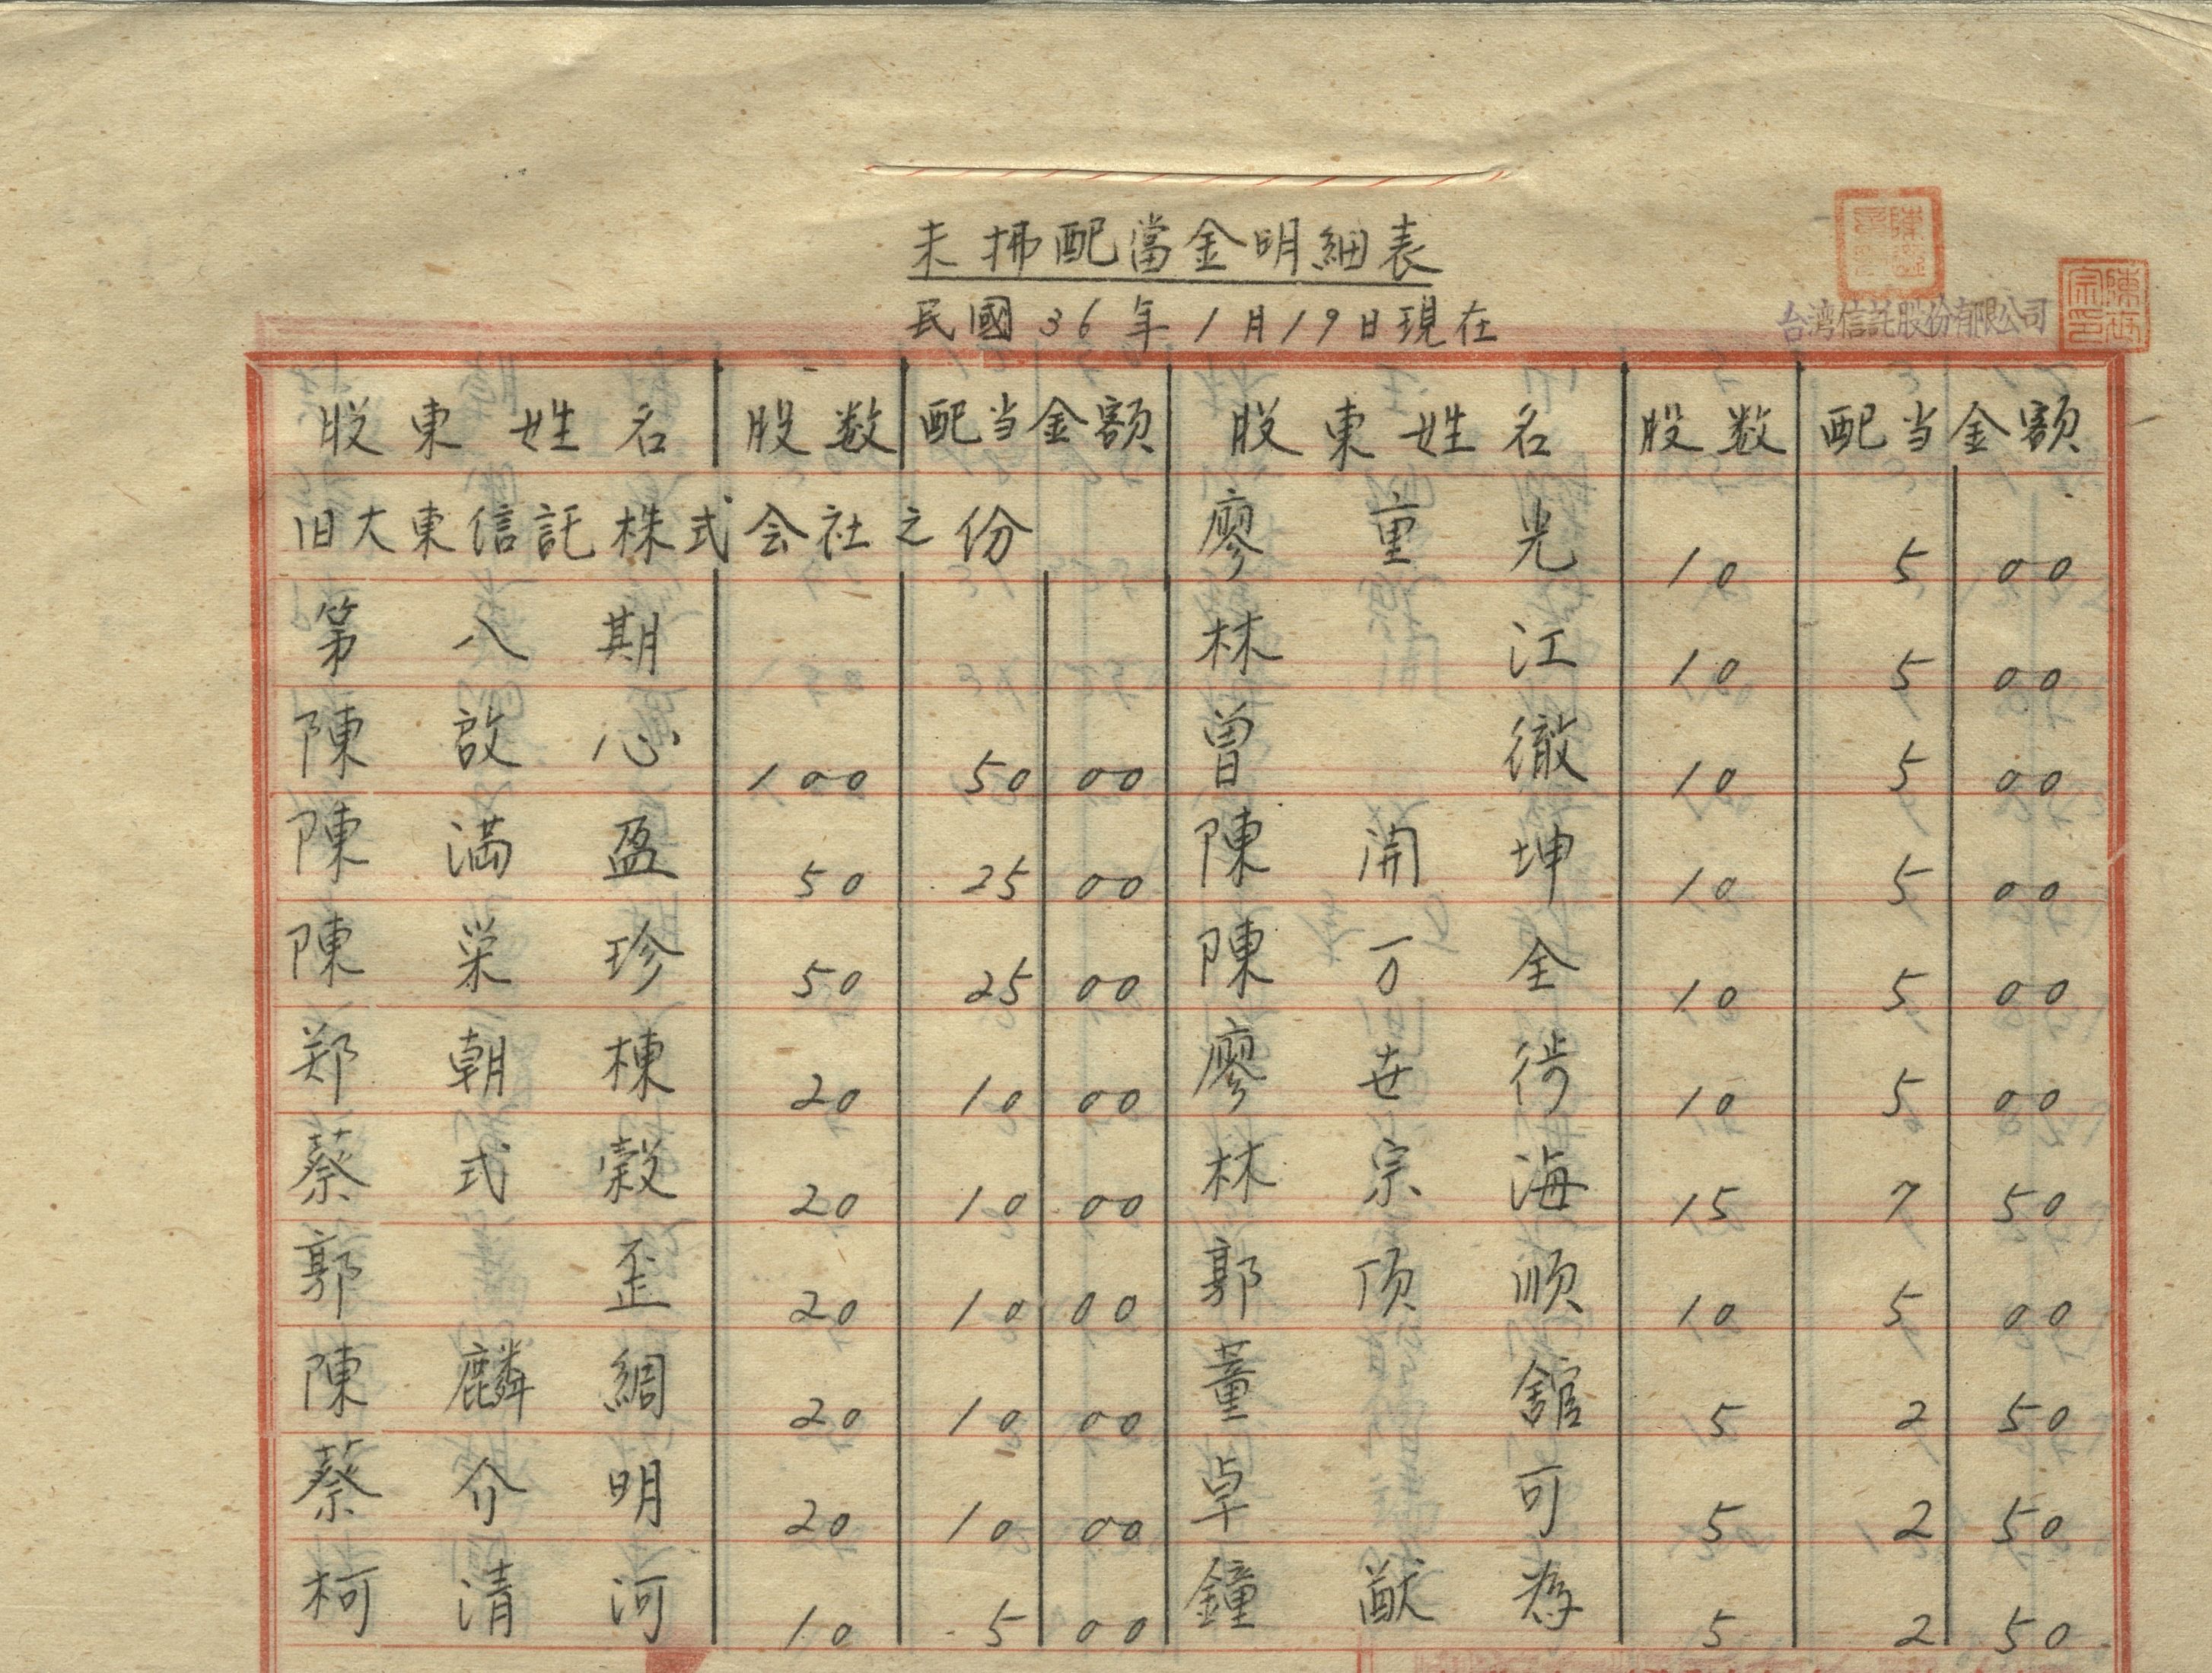 未拂配當金明細表
民國36年1月19日現在
台湾信託股份有限公司
股東姓名 股数 配当金額 股東姓名 股数 配当金額
旧大東信託株式会社之份 廖重光 10 5 00
第八期 林江 10 5 00
陳啟心 100 50 00 曽徹 10 5 00
陳満盈 50 25 00 陳開坤 10 5 00
陳栄珍 50 25 00 陳万全 10 5 00
郑朝棟 20 10 00 廖世 10 5 00
蔡式穀 20 10 00 林宗海 15 7 50
郭歪 20 10 00 郭顶順 10 5 00
陳麟綢 20 10 00 董舘 5 2 50
蔡介明 20 10 00 卓可 5 2 50
柯清河 10 5 00 鐘 5 2 50